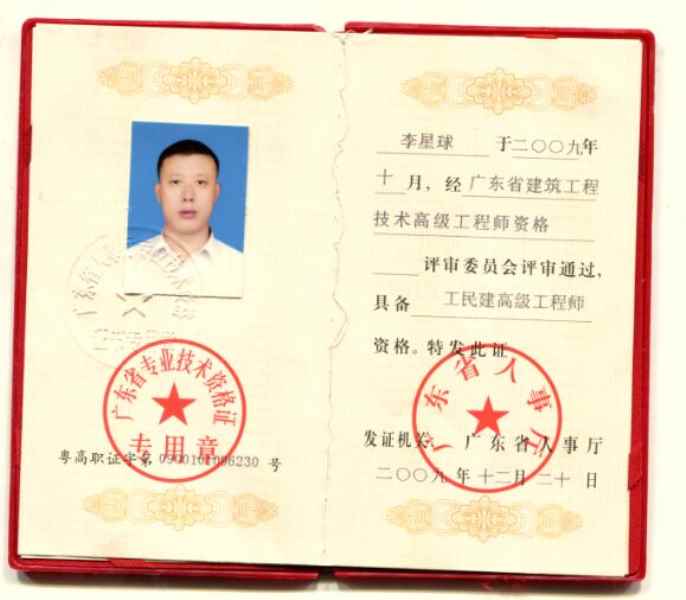 广东省专业技术资格证
专用章
粤高职证字第 0900101096230 号
李星球 于二〇〇九年
十 月，经 广东省建筑工程
技术高级工程师资格
评审委员会评审通过，
具备 工民建高级工程师
资格。特发此证
广东省人事厅
发证机关： 广东省人事厅
二〇〇九 年 十二 月 二十 日